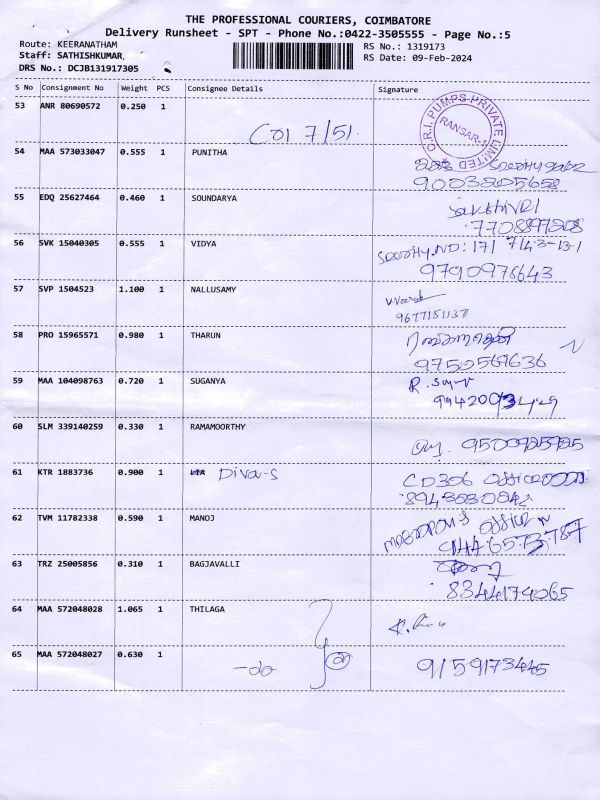 THE PROFESSIONAL COURIERS, COIMBATORE
Delivery Runsheet - SPT - Phone No.:0422-3505555 - Page No.:5
Route: KEERANATHAM RS No.: 1319173
Staff: SATHISHKUMAR, RS Date: 09-Feb-2024
DRS No.: DCJB131917305
S No Consignment No Weight PCS Consignee Details Signature
53 ANR 80690572 0.250 1 C.R.I. PUMPS PRIVATE LIMITED
COI 7/51.
54 MAA 573033047 0.555 1 PUNITHA
55 EDQ 25627464 0.460 1 SOUNDARYA
56 SVK 15040305 0.555 1 VIDYA
9790976643
57 SVP 1504523 1.100 1 NALLUSAMY
58 PRO 15965571 0.980 1 THARUN
9750569636
59 MAA 104098763 0.720 1 SUGANYA
60 SLM 339140259 0.330 1 RAMAMOORTHY
61 KTR 1883736 0.900 1 Diva-S
62 TVM 11782338 0.590 1 MANOJ
63 TRZ 25005856 0.310 1 BAGJAVALLI
8344179065
64 MAA 572048028 1.065 1 THILAGA
65 MAA 572048027 0.630 1 -do 9159173445